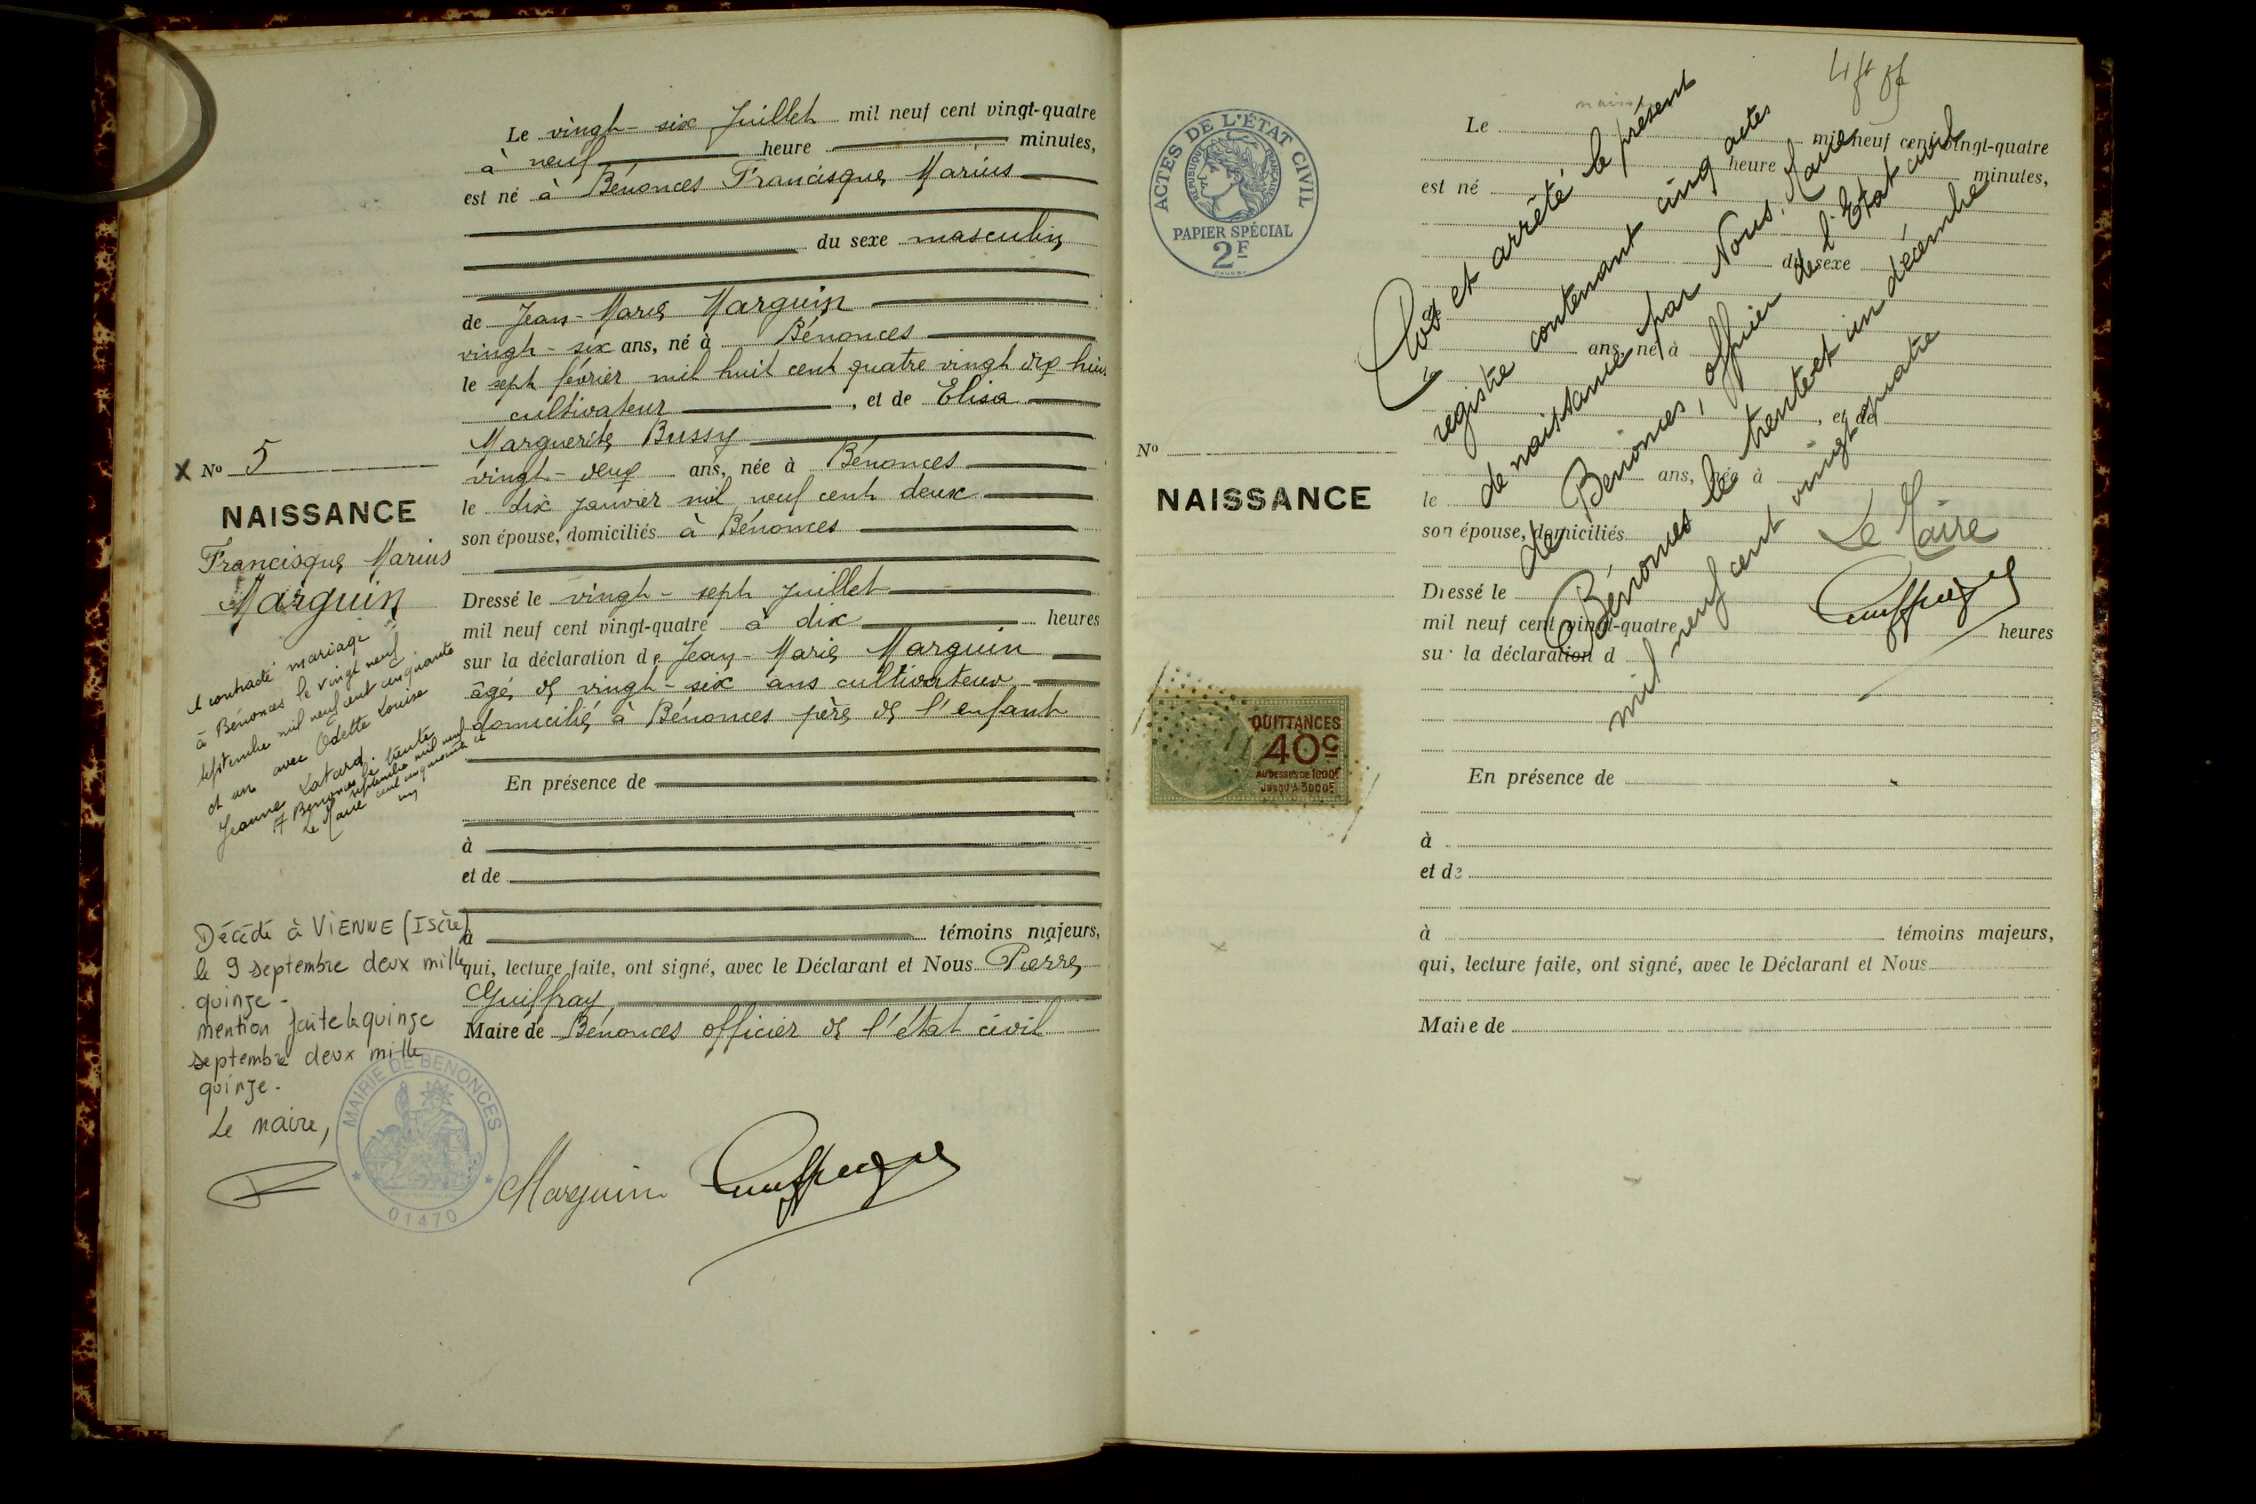 Le vingt-six Juillet mil neuf cent vingt-quatre
à neuf heure minutes,
est né à Bénonces Francisque Marius
du sexe masculin
de Jean-Marie Marguin
vingt-six ans, né à Bénonces
le sept février mil huit cent quatre vingt dix huit
cultivateur, et de Elisa
Marguerite Bussy
vingt-deux ans, née à Bénonces
le dix janvier mil neuf cent deux
son épouse, domiciliés à Bénonces
Dressé le vingt-sept juillet
mil neuf cent vingt-quatre à dix heures
sur la déclaration de Jean-Marie Marguin
âgé de vingt-six ans cultivateur
domicilié à Bénonces père de l'enfant
En présence de
à
et de
à témoins majeurs,
qui, lecture faite, ont signé, avec le Déclarant et Nous Pierre
Guiffray
Maire de Bénonces officier de l'état civil
Marguin
X No 5
NAISSANCE
Francisque Marius
Marguin
A contracté mariage
à Bénonces le vingt neuf
septembre mil neuf cent cinquante
et un avec Odette Louise
Jeanne Latard.
A Bénonces le trente
septembre mil neuf
cent cinquante et
un
Le Maire
Décédé à VIENNE (Isère)
le 9 septembre deux mille
quinze -
mention faite le quinze
septembre deux mille
quinze -
Le maire,
MAIRIE DE BENONCES
01470
ACTES DE L'ÉTAT CIVIL
RÉPUBLIQUE FRANÇAISE
PAPIER SPÉCIAL
2F
No
NAISSANCE
QUITTANCES
40c
AU DESSUS DE 1000F
JUSQU'À 3000F
Le mil neuf cent vingt-quatre
heure minutes,
est né
du sexe
de
ans, né à
le
, et de
ans, née à
le
son épouse, domiciliés
Dressé le
mil neuf cent vingt-quatre heures
sur la déclaration d
En présence de
à
et de
à témoins majeurs,
qui, lecture faite, ont signé, avec le Déclarant et Nous
Maire de
Clos et arrêté le présent
registre contenant cinq actes
de naissance par Nous, Maire
de Bénonces, officier de l'Etat civil
Bénonces le trente et un décembre
mil neuf cent vingt quatre
Le Maire